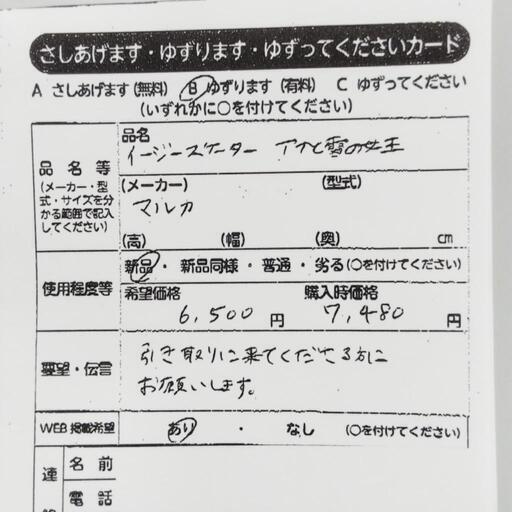 さしあげます・ゆずります・ゆずってくださいカード
A さしあげます(無料) B ゆずります(有料) C ゆずってください
(いずれかに○を付けてください)
品名等
(メーカー・型式・サイズを分かる範囲で記入してください)
品名
イージースケーター アナと雪の女王
(メーカー) (型式)
マルカ
(高) (幅) (奥) cm
使用程度等
新品・新品同様・普通・劣る(○を付けてください)
希望価格 購入時価格
6,500円 7,480円
要望・伝言
引き取りに来てくださる方に
お願いします。
WEB掲載希望 あり・なし (○を付けてください)
連
名前
電話